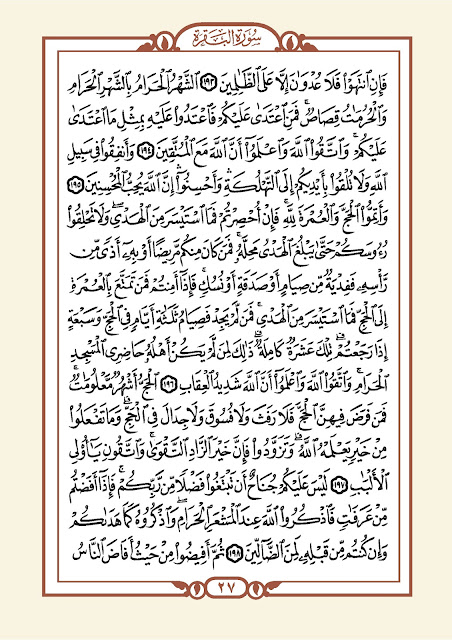 سُورَةُ البَقَرَةِ
فَإِنِ ٱنتَهَوۡاْ فَلَا عُدۡوَٰنَ إِلَّا عَلَى ٱلظَّٰلِمِينَ ١٩٣ ٱلشَّهۡرُ ٱلۡحَرَامُ بِٱلشَّهۡرِ ٱلۡحَرَامِ
وَٱلۡحُرُمَٰتُ قِصَاصٞۚ فَمَنِ ٱعۡتَدَىٰ عَلَيۡكُمۡ فَٱعۡتَدُواْ عَلَيۡهِ بِمِثۡلِ مَا ٱعۡتَدَىٰ
عَلَيۡكُمۡۚ وَٱتَّقُواْ ٱللَّهَ وَٱعۡلَمُوٓاْ أَنَّ ٱللَّهَ مَعَ ٱلۡمُتَّقِينَ ١٩٤ وَأَنفِقُواْ فِي سَبِيلِ
ٱللَّهِ وَلَا تُلۡقُواْ بِأَيۡدِيكُمۡ إِلَى ٱلتَّهۡلُكَةِ وَأَحۡسِنُوٓاْۚ إِنَّ ٱللَّهَ يُحِبُّ ٱلۡمُحۡسِنِينَ ١٩٥
وَأَتِمُّواْ ٱلۡحَجَّ وَٱلۡعُمۡرَةَ لِلَّهِۚ فَإِنۡ أُحۡصِرۡتُمۡ فَمَا ٱسۡتَيۡسَرَ مِنَ ٱلۡهَدۡيِۖ وَلَا تَحۡلِقُواْ
رُءُوسَكُمۡ حَتَّىٰ يَبۡلُغَ ٱلۡهَدۡيُ مَحِلَّهُۥۚ فَمَن كَانَ مِنكُم مَّرِيضًا أَوۡ بِهِۦٓ أَذٗى مِّن
رَّأۡسِهِۦ فَفِدۡيَةٞ مِّن صِيَامٍ أَوۡ صَدَقَةٍ أَوۡ نُسُكٖۚ فَإِذَآ أَمِنتُمۡ فَمَن تَمَتَّعَ بِٱلۡعُمۡرَةِ
إِلَى ٱلۡحَجِّ فَمَا ٱسۡتَيۡسَرَ مِنَ ٱلۡهَدۡيِۚ فَمَن لَّمۡ يَجِدۡ فَصِيَامُ ثَلَٰثَةِ أَيَّامٖ فِي ٱلۡحَجِّ وَسَبۡعَةٍ
إِذَا رَجَعۡتُمۡۗ تِلۡكَ عَشَرَةٞ كَامِلَةٞۗ ذَٰلِكَ لِمَن لَّمۡ يَكُنۡ أَهۡلُهُۥ حَاضِرِي ٱلۡمَسۡجِدِ
ٱلۡحَرَامِۚ وَٱتَّقُواْ ٱللَّهَ وَٱعۡلَمُوٓاْ أَنَّ ٱللَّهَ شَدِيدُ ٱلۡعِقَابِ ١٩٦ ٱلۡحَجُّ أَشۡهُرٞ مَّعۡلُومَٰتٞۚ
فَمَن فَرَضَ فِيهِنَّ ٱلۡحَجَّ فَلَا رَفَثَ وَلَا فُسُوقَ وَلَا جِدَالَ فِي ٱلۡحَجِّۗ وَمَا تَفۡعَلُواْ
مِنۡ خَيۡرٖ يَعۡلَمۡهُ ٱللَّهُۗ وَتَزَوَّدُواْ فَإِنَّ خَيۡرَ ٱلزَّادِ ٱلتَّقۡوَىٰۖ وَٱتَّقُونِ يَٰٓأُوْلِي
ٱلۡأَلۡبَٰبِ ١٩٧ لَيۡسَ عَلَيۡكُمۡ جُنَاحٌ أَن تَبۡتَغُواْ فَضۡلٗا مِّن رَّبِّكُمۡۚ فَإِذَآ أَفَضۡتُم
مِّنۡ عَرَفَٰتٖ فَٱذۡكُرُواْ ٱللَّهَ عِندَ ٱلۡمَشۡعَرِ ٱلۡحَرَامِۖ وَٱذۡكُرُوهُ كَمَا هَدَىٰكُمۡ
وَإِن كُنتُم مِّن قَبۡلِهِۦ لَمِنَ ٱلضَّآلِّينَ ١٩٨ ثُمَّ أَفِيضُواْ مِنۡ حَيۡثُ أَفَاضَ ٱلنَّاسُ
٢٧